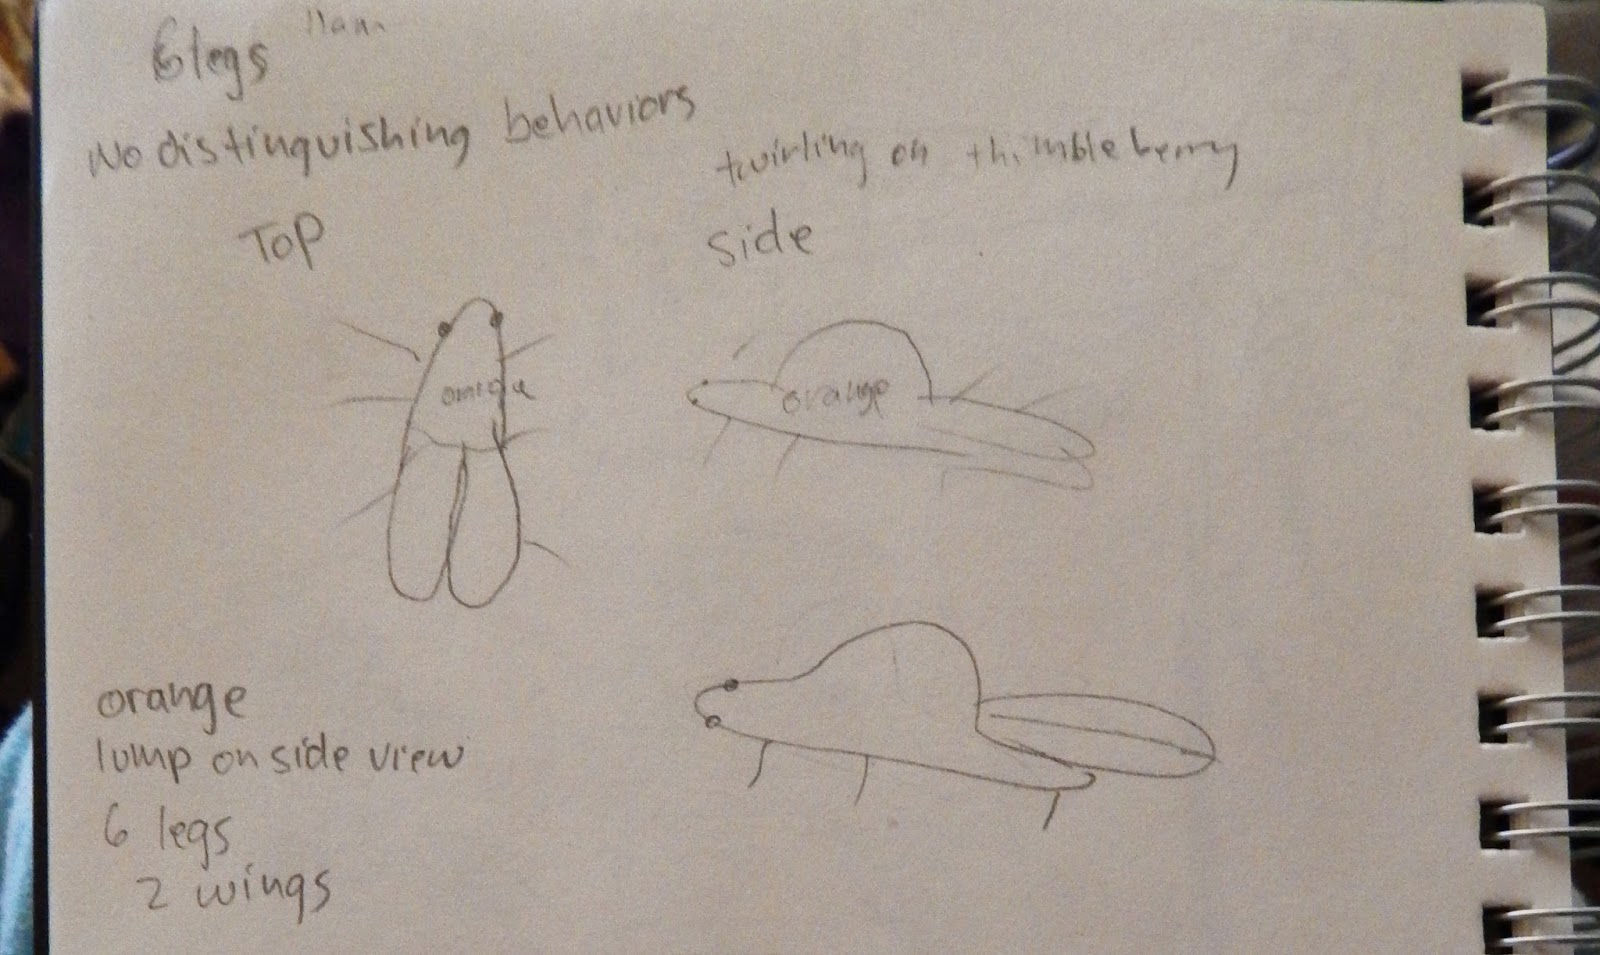 11am
6 legs
No distinquishing behaviors
twirling on thimbleberry
TOP
side
orange
orange
orange
lump on side view
6 legs
2 wings